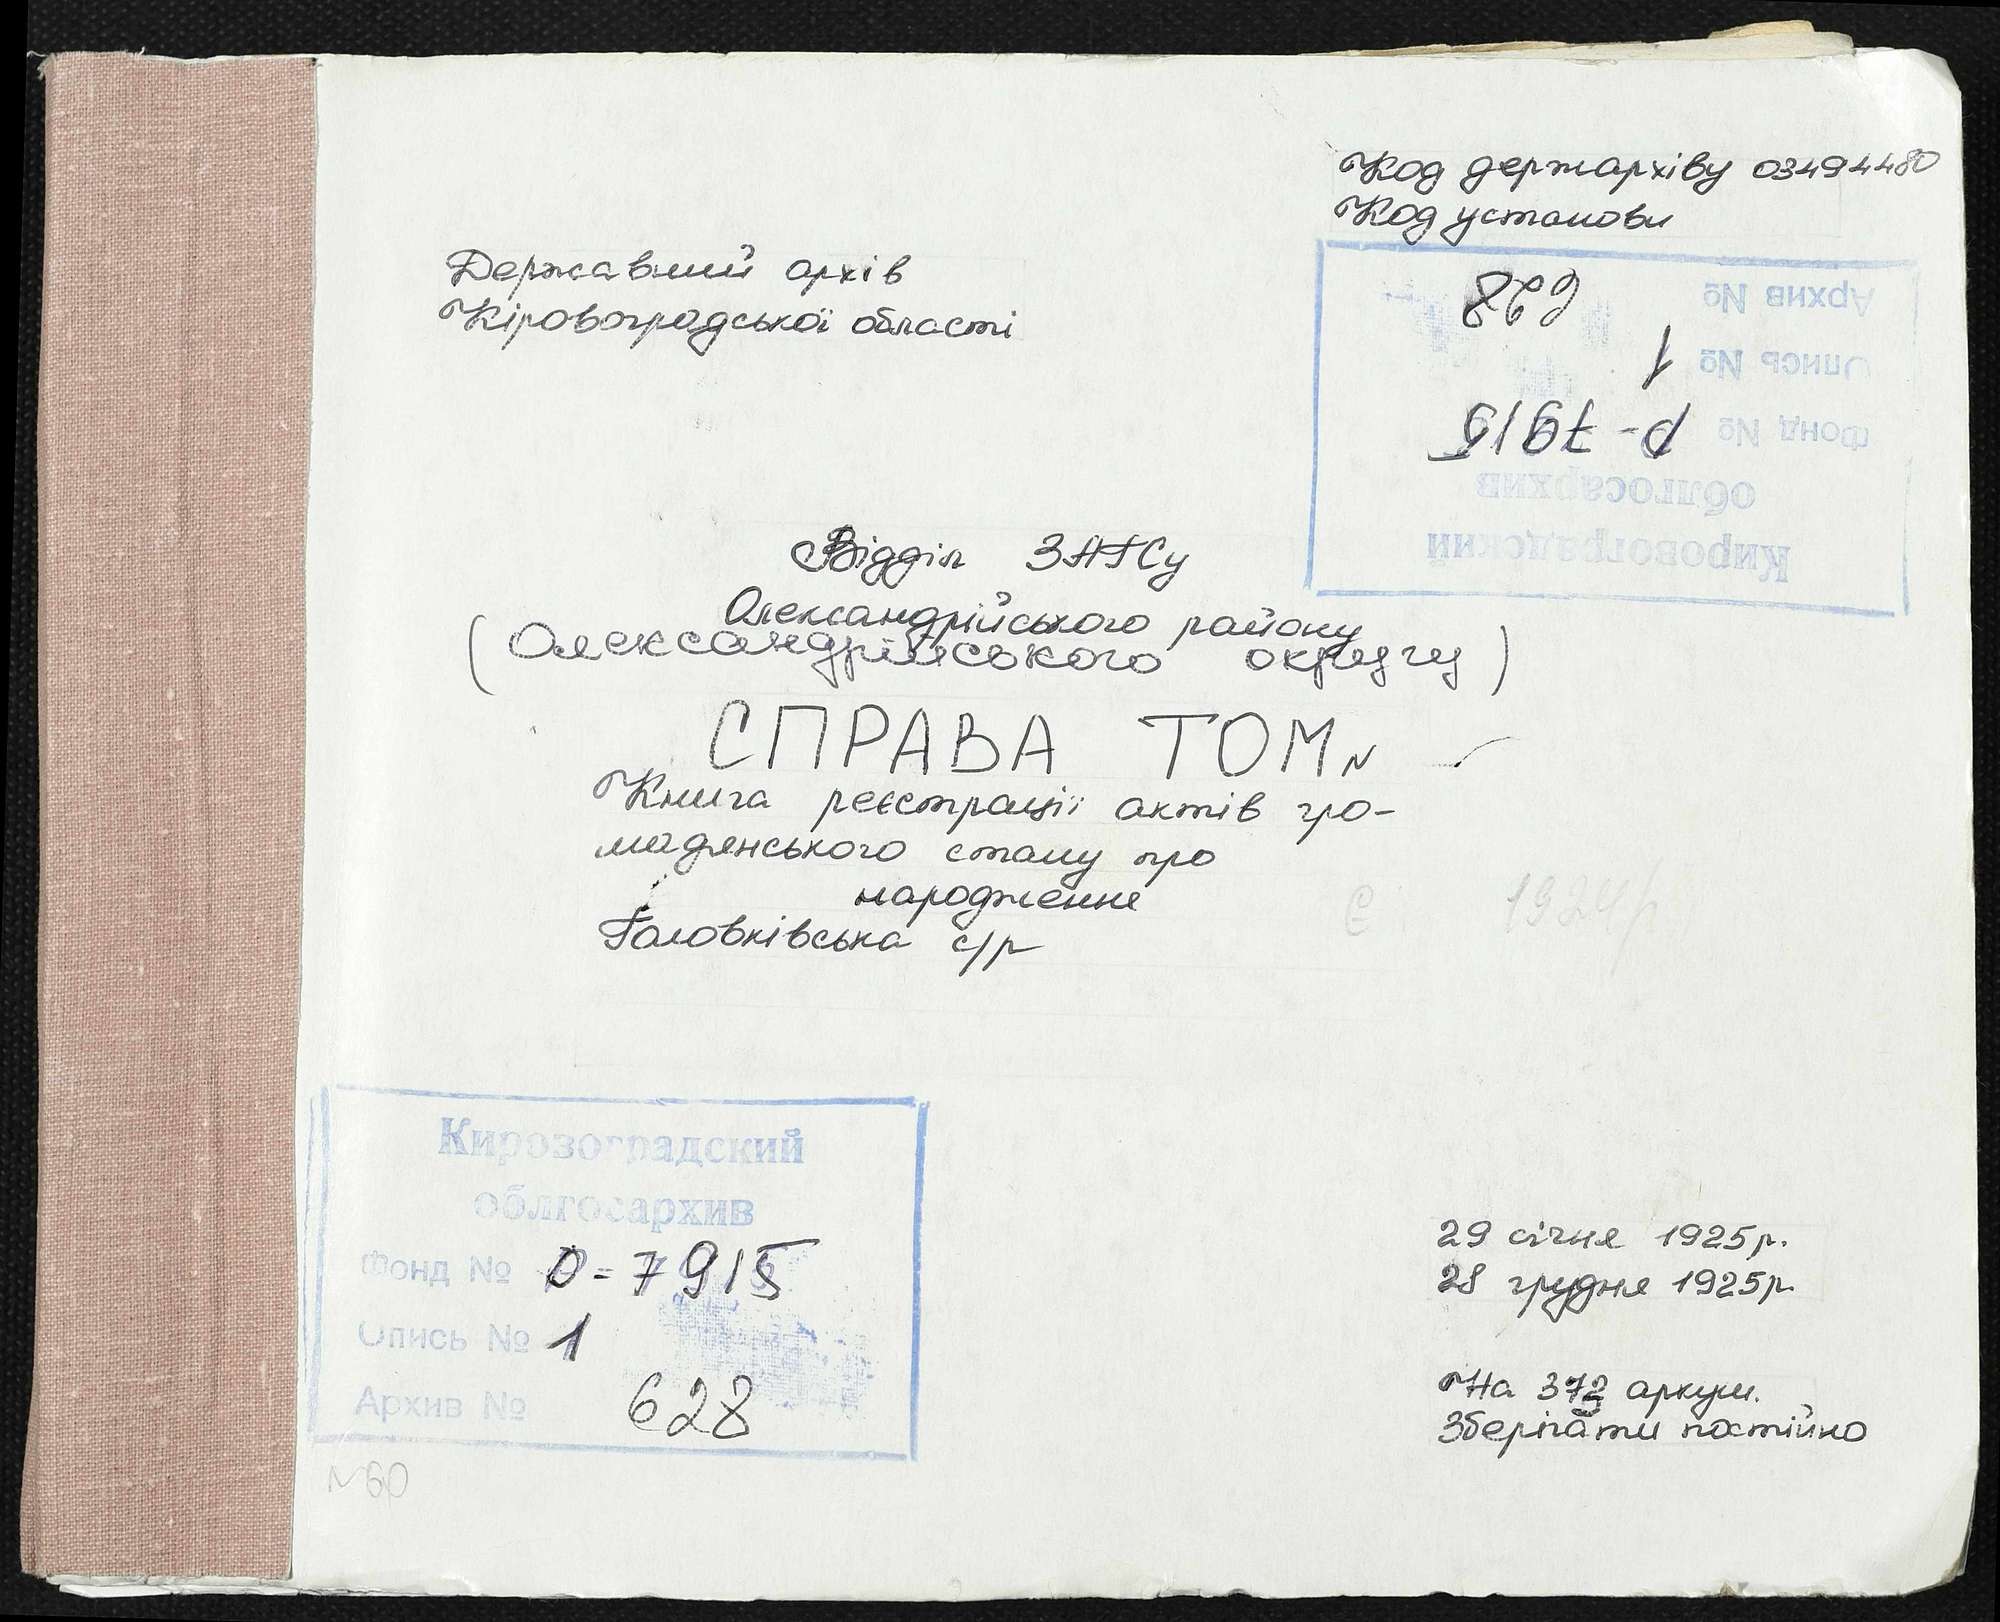 Код держархіву 03494480
Код установи
Державний архів
Кіровоградської області
Архив № 628
Опись № 1
Фонд № Р-7915
облгосархив
Кировоградский
Відділ ЗАГСу
Олександрійського району
(Олександрійського округу)
СПРАВА ТОМ N
Книга реєстрації актів гро-
мадянського стану про
народження
Головківська с/р
1924р
Кировоградский
облгосархив
Фонд № Р-7915
Опись № 1
Архив № 628
29 січня 1925р.
28 грудня 1925р.
На 373 аркуш.
Зберігати постійно
N60